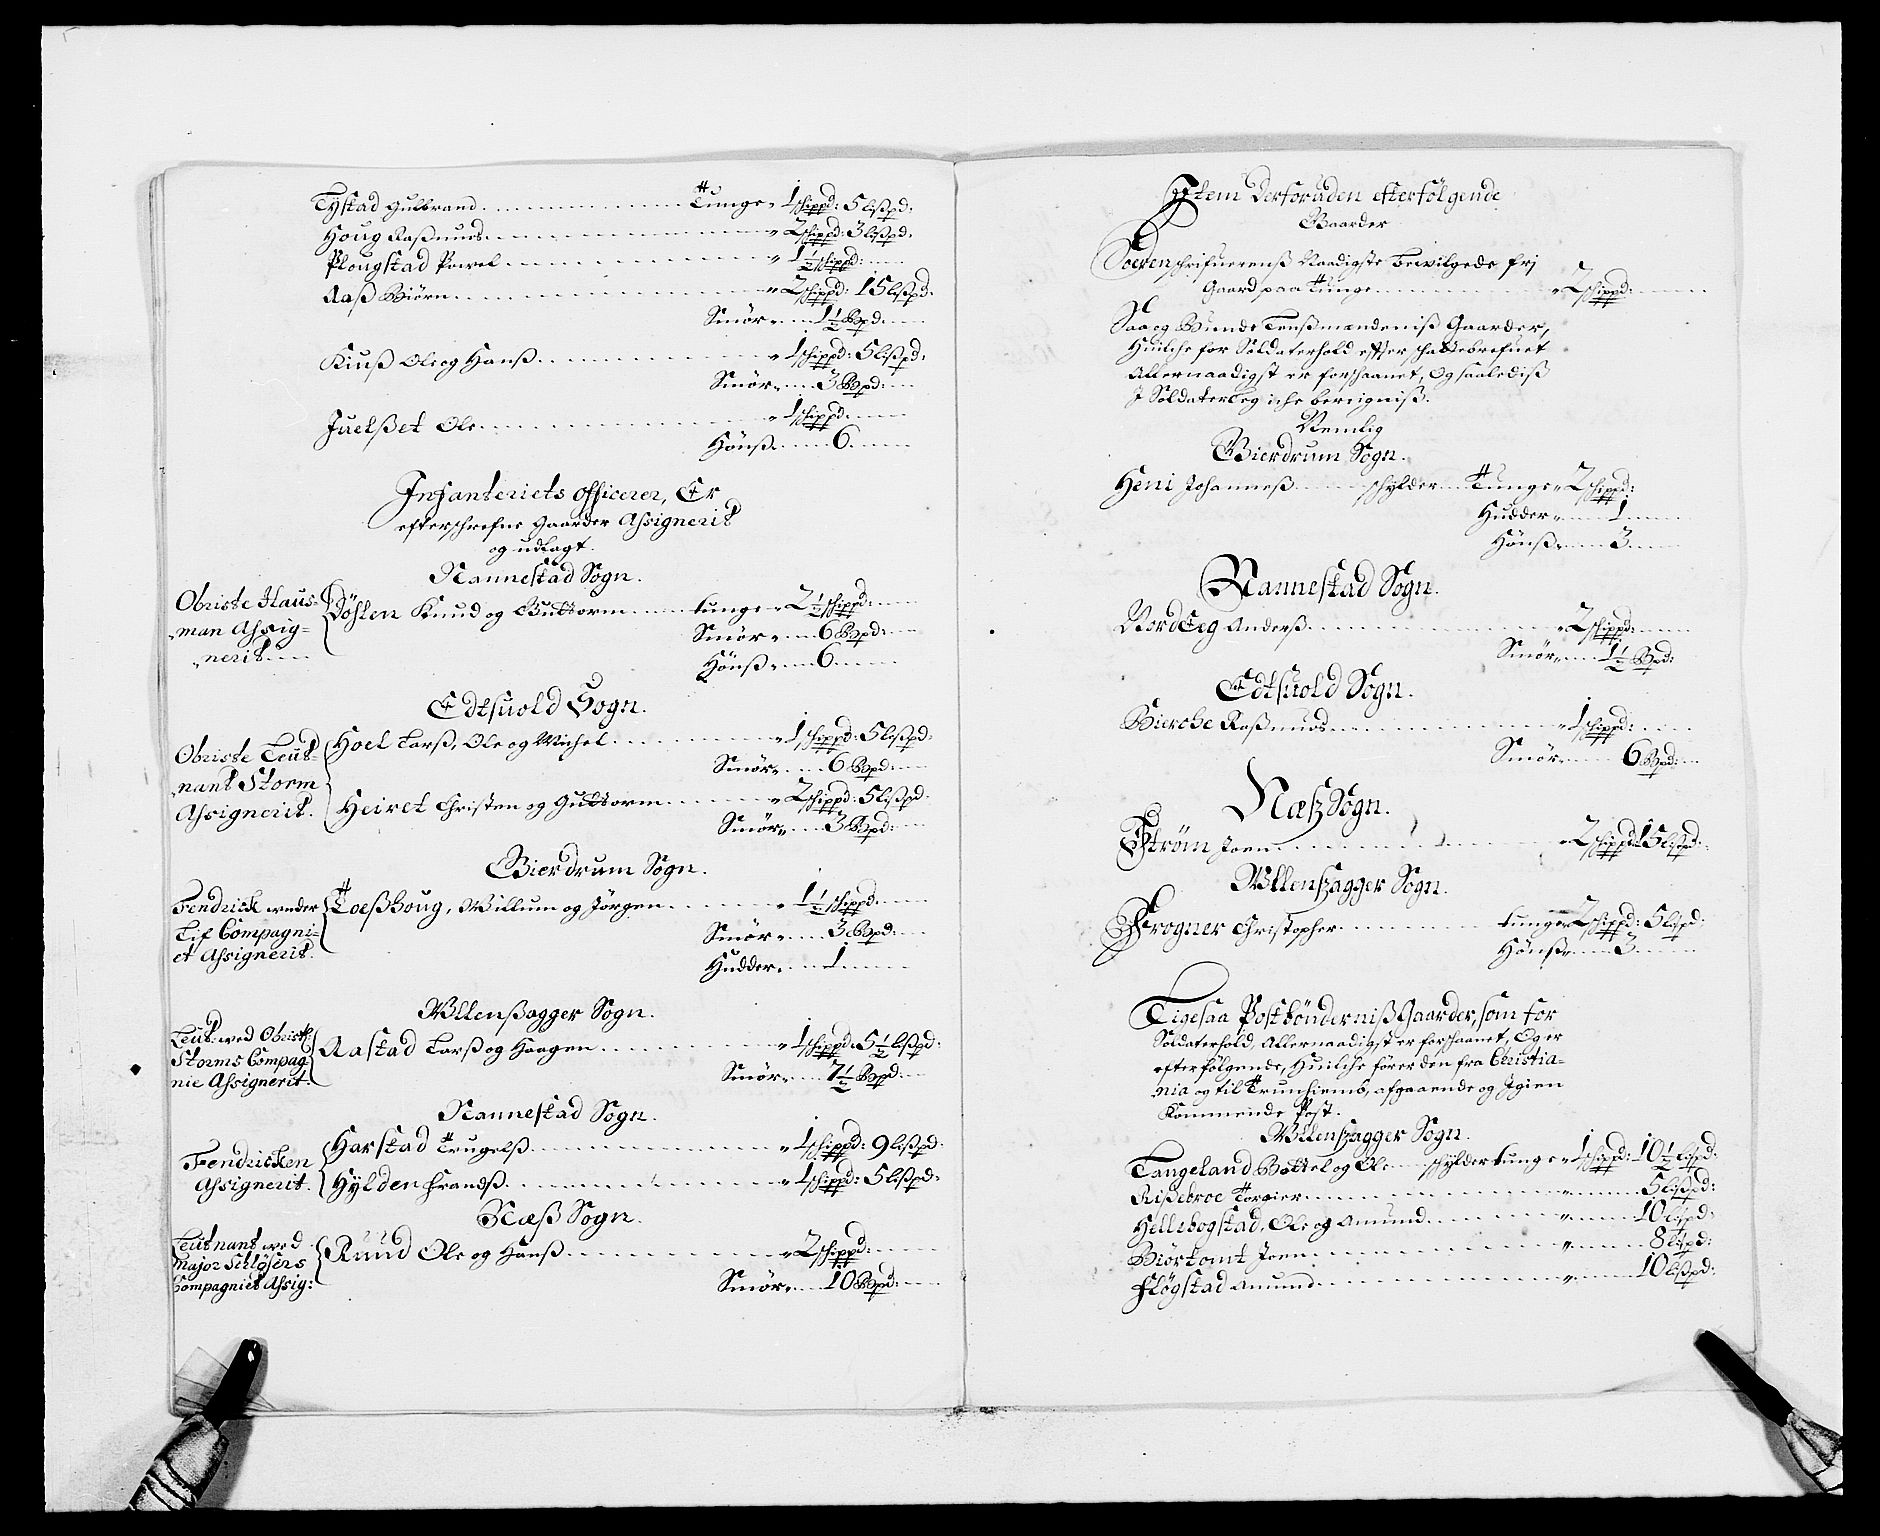 Tystad Gulbrand Tunge 1 schippd: 5 lißpd:
Houg Raßmus 2 schippd: 3 lißpd:
Plougstad Powel 1½ schippd:
Aaß Biörn 2 schippd: 15 lißpd:
Smör 1½ Bpd:
Kiuß Ole og Hanß 1 schippd: 5 lißpd:
Smör 3 Bpd:
Juelßet Ole 1 schippd:
Hönß 6
Infanteriets officerer, Er
efterschrefne Gaarder Assignerit
og udlagt.
Nannestad Sogn.
Obriste Haus-
man Assig-
nerit
Döhlen Knud og Guttorm tunge 2½ schippd:
Smör 6 Bpd:
Hönß 6
Edtsuold Sogn.
Obriste Leut-
nant Storm
Assignerit.
Hoel Larß, Ole og Michel 1 schippd: 5 lißpd:
Smör 6 Bpd:
Heiret Christen og Guttorm 2 schippd: 5 lißpd:
Smör 3 Bpd:
Bierdrum Sogn.
Fendrick under
Lif Compagni-
et Assignerit.
Loeßhoug, Willum og Jörgen 1½ schippd:
Smör 3 Bpd:
Hudder 1
Ullenßagger Sogn.
Leut: wed Obrist:
Storms Compag
nie Assignerit.
Rastad Larß og Haagen 1 schippd: 5½ lißpd:
Smör 7½ Bpd:
Nannestad Sogn.
Fendricken
Assignerit.
Harstad Trugelß 1 schippd: 9 lißpd:
Hylden Frandß 1 schippd: 5 lißpd:
Næß Sogn.
Leutnant wed
Major Schlösers
Compagniet Assig:
Ruud Ole og Hanß 2 schippd:
Smör 10 Bpd:
Item Derforuden efterfölgende
Gaarder
Soerenschrifuerenß Naadigste bewilgede frj
Gaard paa Tunge 2 schippd:
Saa og Bunde Lenßmændeniß Gaarder,
Huilche for Soldaterhold effter schattebrefuet
Allernaadigst er forschaanet, Og saalediß
I Soldaterleg iche bereigniß.
Nemlig
Bierdrum Sogn.
Heni Johanneß schylder Tunge 2 schippd:
Hudder 1
Hönß 3
Nannestad Sogn.
Nordleg Anderß 2 schippd:
Smör 1½ Bpd:
Edtsuold Sogn.
Bierche Raßmuds 1 schippd:
Smör 6 Bpd:
Næß Sogn.
Ström Joen 2 schippd: 15 lißpd:
Ullenßagger Sogn.
Frogner Christopher tunge 2 schippd: 5 lißpd:
Hönß 3
Ligesaa Postbönderniß Gaarder, som for
Soldaterhold, Allernaadigst er forschaanet, Og er
efterfölgende, Huilche förer den fra Christia-
nia og til Trunhiemb, afgaaende og Igien
Kommende Post.
Ullenßagger Sogn.
Langeland Bottel og Ole schylder tunge 1 schippd: 10½ lißpd:
Rißebroe Torgier 5 lißpd:
Hellehogstad, Ole og Amund 10 lißpd:
Biörtomt Joen 8 lißpd:
Flögstad Amund 10 lißpd: